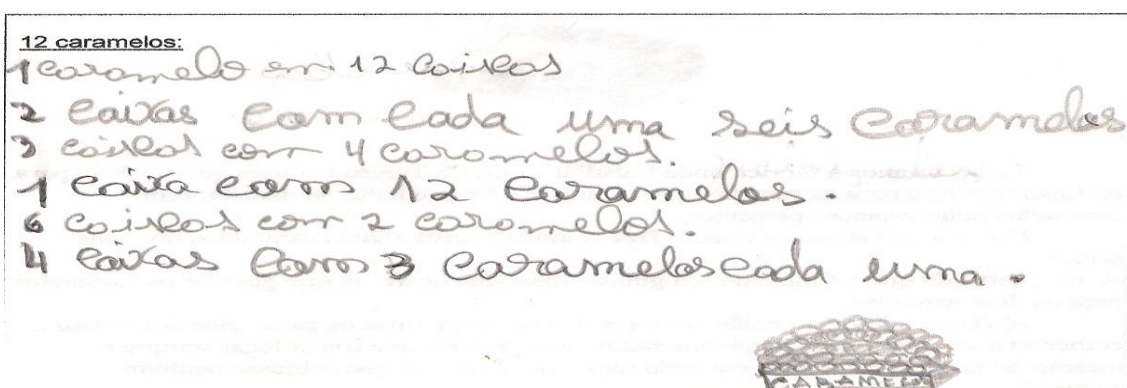 12 caramelos:
1 caramelo em 12 caixas
2 caixas com cada uma seis caramelos
3 caixas com 4 caramelos.
1 caixa com 12 caramelos.
6 caixas com 2 caramelos.
4 caixas com 3 caramelos cada uma.
CARAMELOS